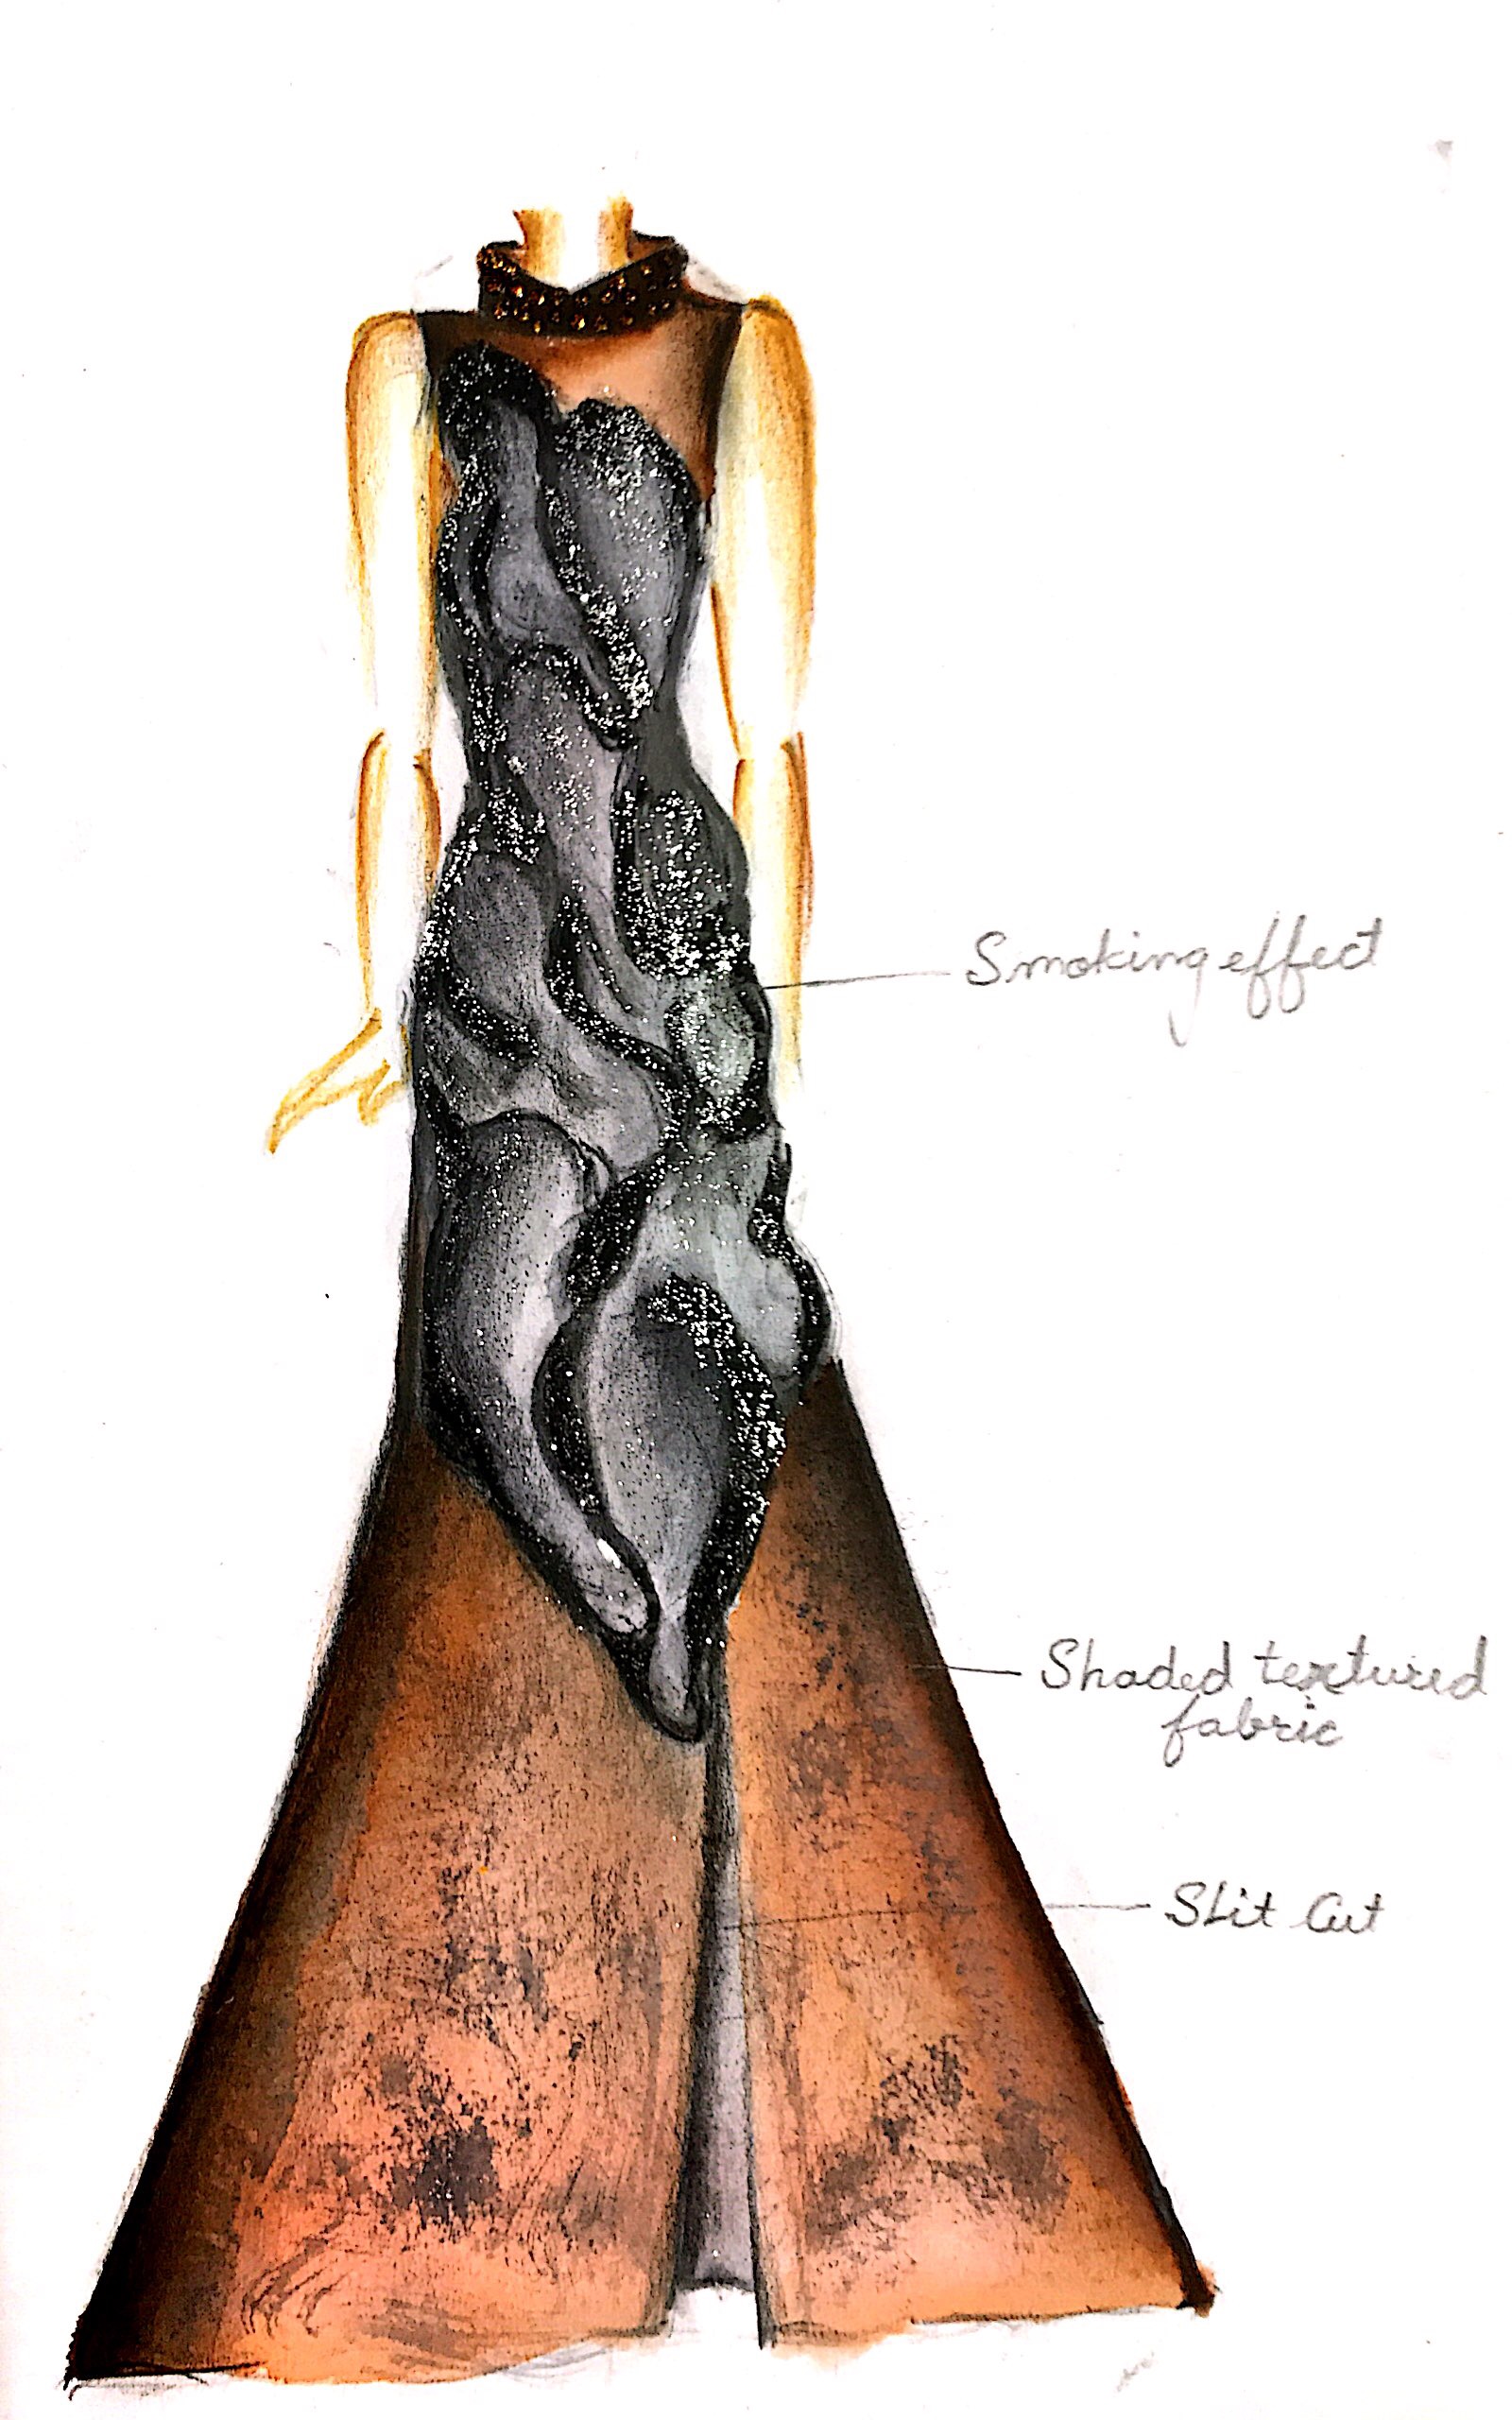 Smoking effect
Shaded textured
fabric
Slit Cut